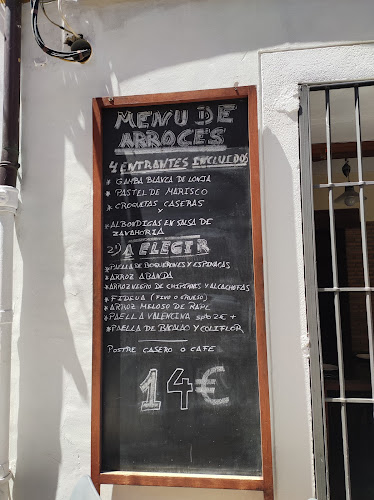 MENU DE
ARROCES
4 ENTRANTES INCLUIDOS
* GAMBA BLANCA DE LONJA
* PASTEL DE MARISCO
* CROQUETAS CASERAS
Y
* ALBONDIGAS EN SALSA DE
ZANAHORIA
2º) A ELEGIR
* PAELLA DE BOQUERONES Y ESPINACAS
* ARROZ ABANDA
* ARROZ NEGRO DE CHIPIRONES Y ALCACHOFAS
* FIDEUA (FINO O GRUESO)
* ARROZ MELOSO DE RAPE
* PAELLA VALENCINA SUP 2€ +
* PAELLA DE BACALAO Y COLIFLOR
POSTRE CASERO O CAFE
14€